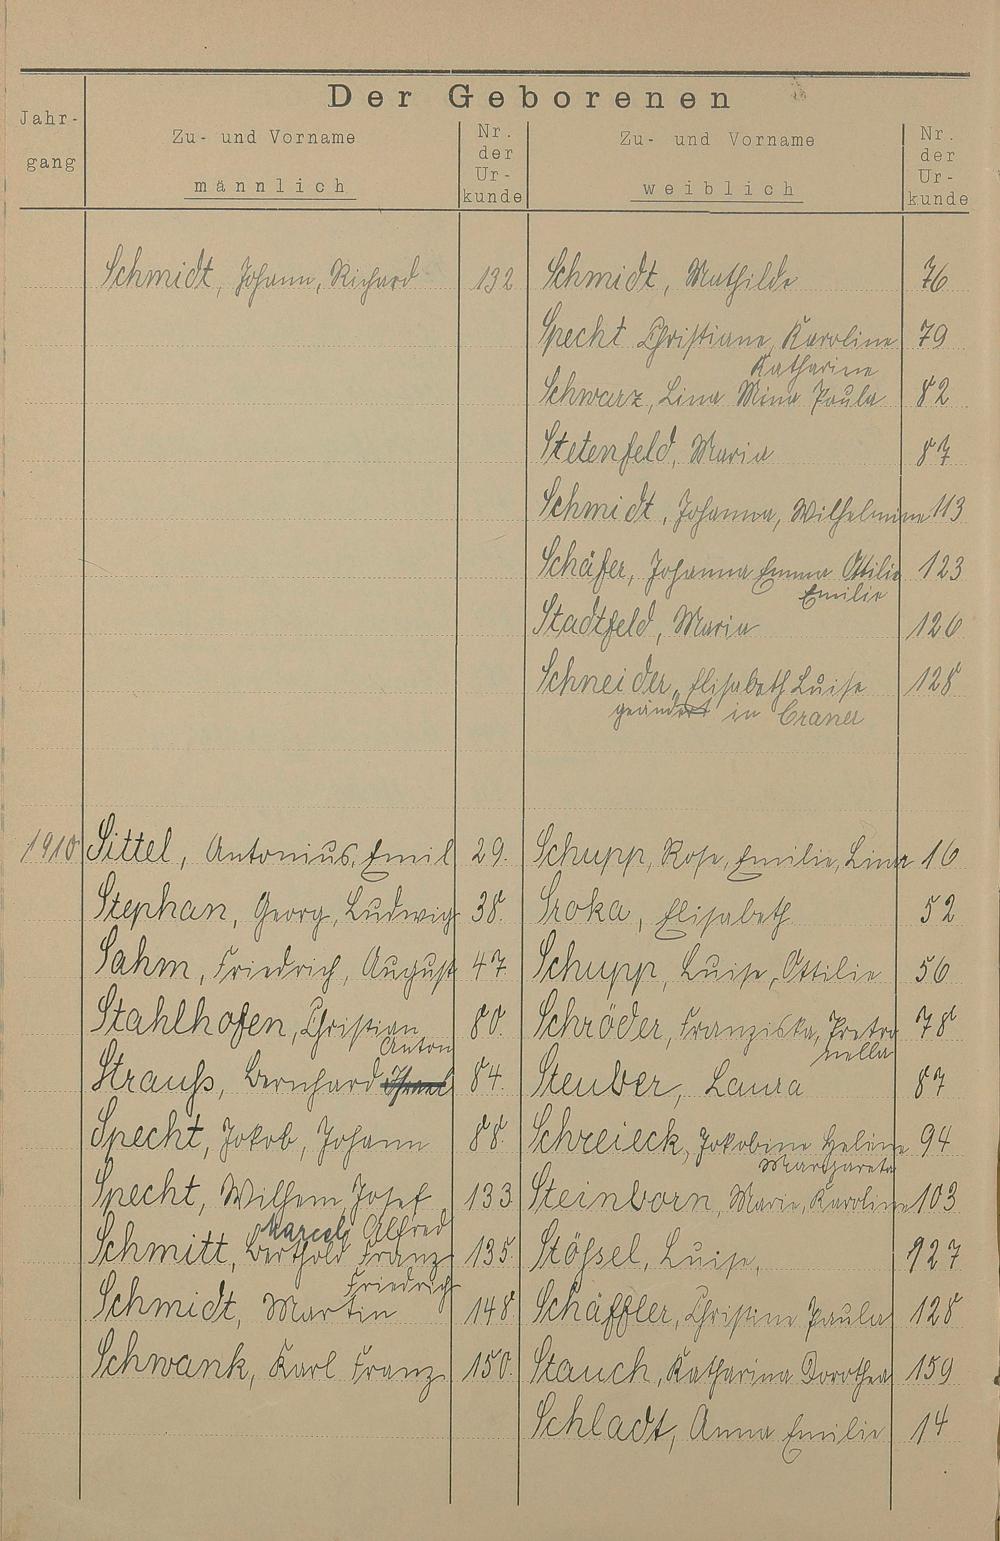 Der Geborenen
Jahr-
gang
Zu- und Vorname
männlich
Nr.
der
Ur-
kunde
Zu- und Vorname
weiblich
Nr.
der
Ur-
kunde
Schmidt, Johann, Richard 132 Schmidt, Mathilde 76
Specht Christiane, Karoline 79
Katharine
Schwarz, Lina Mina Paula 82
Stetenfeld, Maria 87
Schmidt, Johanna, Wilhelmine 113
Schäfer, Johanna Emma Ottilie 123
Emilie
Stadtfeld, Maria 126
Schneider, Elisabeth Luise 128
geändert in Craner
1910 Sittel, Antonius, Emil 29. Schupp, Rosa, Emilie, Lina 16
Stephan, Georg, Ludwig 38. Sroka, Elisabeth 52
Sahm, Friedrich, August 47 Schupp, Luise, Ottilie 56
Stahlhofen, Christian 80. Schröder, Franziska, Pretro 78
Anton nella
Strauß, Bernhard Israel 84. Steuber, Laura 87
Specht, Jakob, Johann 88. Schreieck, Jakobine Helene 94
Margareta
Specht, Wilhem, Josef 133 Steinborn, Marie, Karoline 103
Marcel Alfred
Schmitt, Berthold Franz 135. Stößel, Luise, 127
Friedrich
Schmidt, Martin 148 Schäffler, Christine Paula 128
Schwank, Karl Franz 150. Stauch, Katharina Dorothea 159
Schladt, Anna Emilie 14